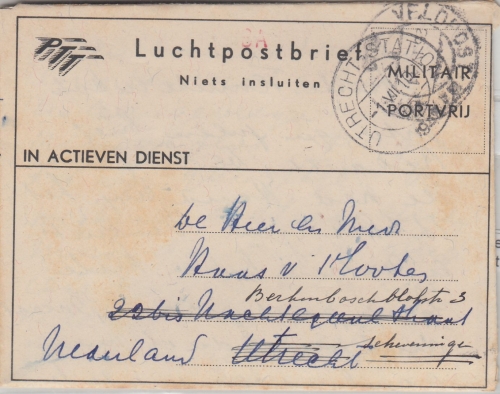 PTT
Luchtpostbrief
Niets insluiten
VELDPOST
UTRECHT STATION
MILITAIR
PORTVRIJ
IN ACTIEVEN DIENST
De Heer en Mevr
Haas v
3
22bis Nachtegaal straat
Nederland Utrecht Scheveningen